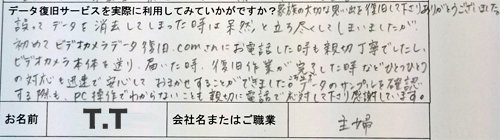 データ復旧サービスを実際に利用してみていかがですか? 家族の大切な思い出を復旧して下さりありがとうございました。
誤ってデータを消去してしまった時は呆然と立ち尽くしてしまいましたが
初めてビデオカメラデータ復旧.comさんにお電話した時も親切丁寧でしたし、
ビデオカメラ本体を送り、届いた時、復旧作業が完了した時などひとつひとつ
の対応も迅速で安心しておまかせすることができました。データのサンプルを確認
する際も、PC操作でわからないことも親切に電話で応対して下さり感謝しています。
お名前 T.T 会社名またはご職業 主婦